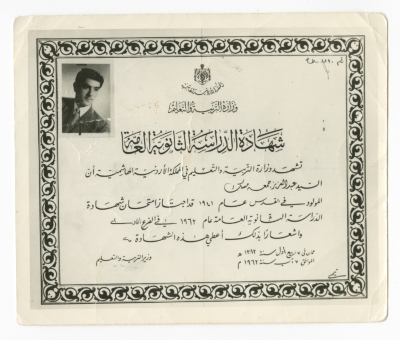 وزارة التربية والتعليم
شهادة الدراسة الثانوية العامة
تشهد وزارة التربية والتعليم في المملكة الأردنية الهاشمية أن
السيد عبد العزيز جمعه
المولود في القدس عام ١٩٤١ قد اجتاز امتحان شهادة
الدراسة الثانوية العامة عام ١٩٦٢ في الفرع الأدبي
واشعارا بذلك أعطي هذه الشهادة
عمان في ٦ ربيع أول سنة ١٣٨٢ هـ
الموافق ٦ آب سنة ١٩٦٢ م
وزير التربية والتعليم